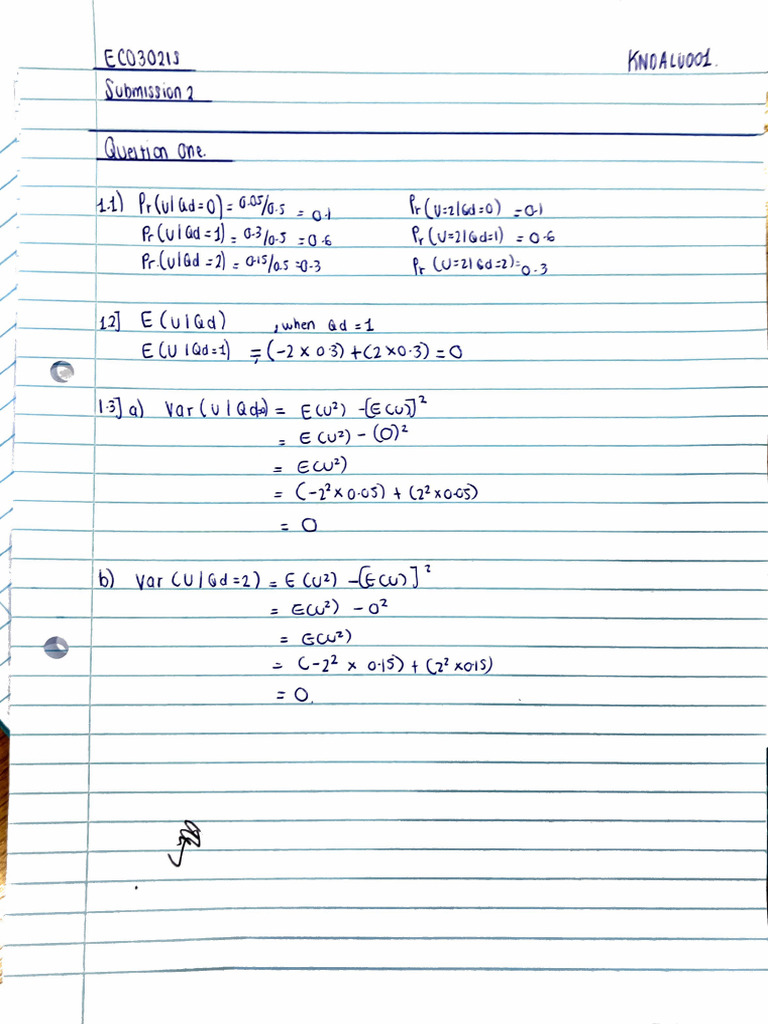 ECO3021S KNOALU001.
Submission 2
Question One.
1.1) Pr(U|Qd=0) = 0.05/0.5 = 0.1 Pr(U=2|Qd=0) = 0.1
Pr(U|Qd=1) = 0.3/0.5 = 0.6 Pr(U=2|Qd=1) = 0.6
Pr.(U|Qd=2) = 0.15/0.5 = 0.3 Pr (U=2|Qd=2) = 0.3
1.2] E(U|Qd) , when Qd = 1
E(U|Qd=1) = (-2 × 0.3) + (2 × 0.3) = 0
1.3] a) Var(U|Qd=0) = E(U²) - [E(U)]²
= E(U²) - (0)²
= E(U²)
= (-2² × 0.05) + (2² × 0.05)
= 0
b) Var(U|Qd=2) = E(U²) - [E(U)]²
= E(U²) - 0²
= E(U²)
= (-2² × 0.15) + (2² × 0.15)
= 0.